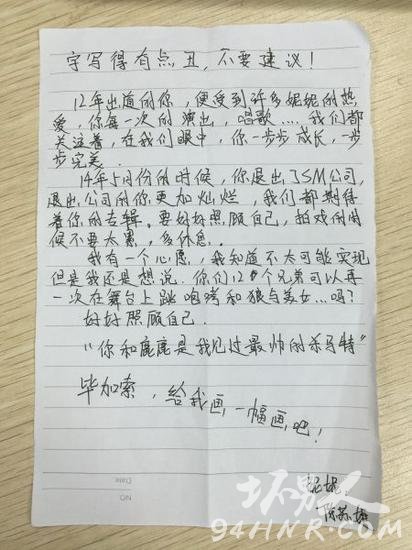 字写得有点丑,不要建议!
12年出道的你,便受到许多妮妮的热
爱,你每一次的演出,唱歌....我们都
关注着,在我们眼中,你一步步成长,一步
步完美.
14年5月份的时候,你退出了SM公司,
退出公司的你更加灿烂,我们都期待
着你的专辑.要好好照顾自己,拍戏的时
候不要太累,多休息.
我有一个心愿,我知道不太可能实现
但是我还是想说.你们12个兄弟可以再
一次在舞台上跳咆哮和狼与美女...吗?
好好照顾自己.
"你和鹿鹿是我见过最帅的杀马特"
毕加索,给我画一幅画吧!
坏男人
94HNR.COM
NO.
Date